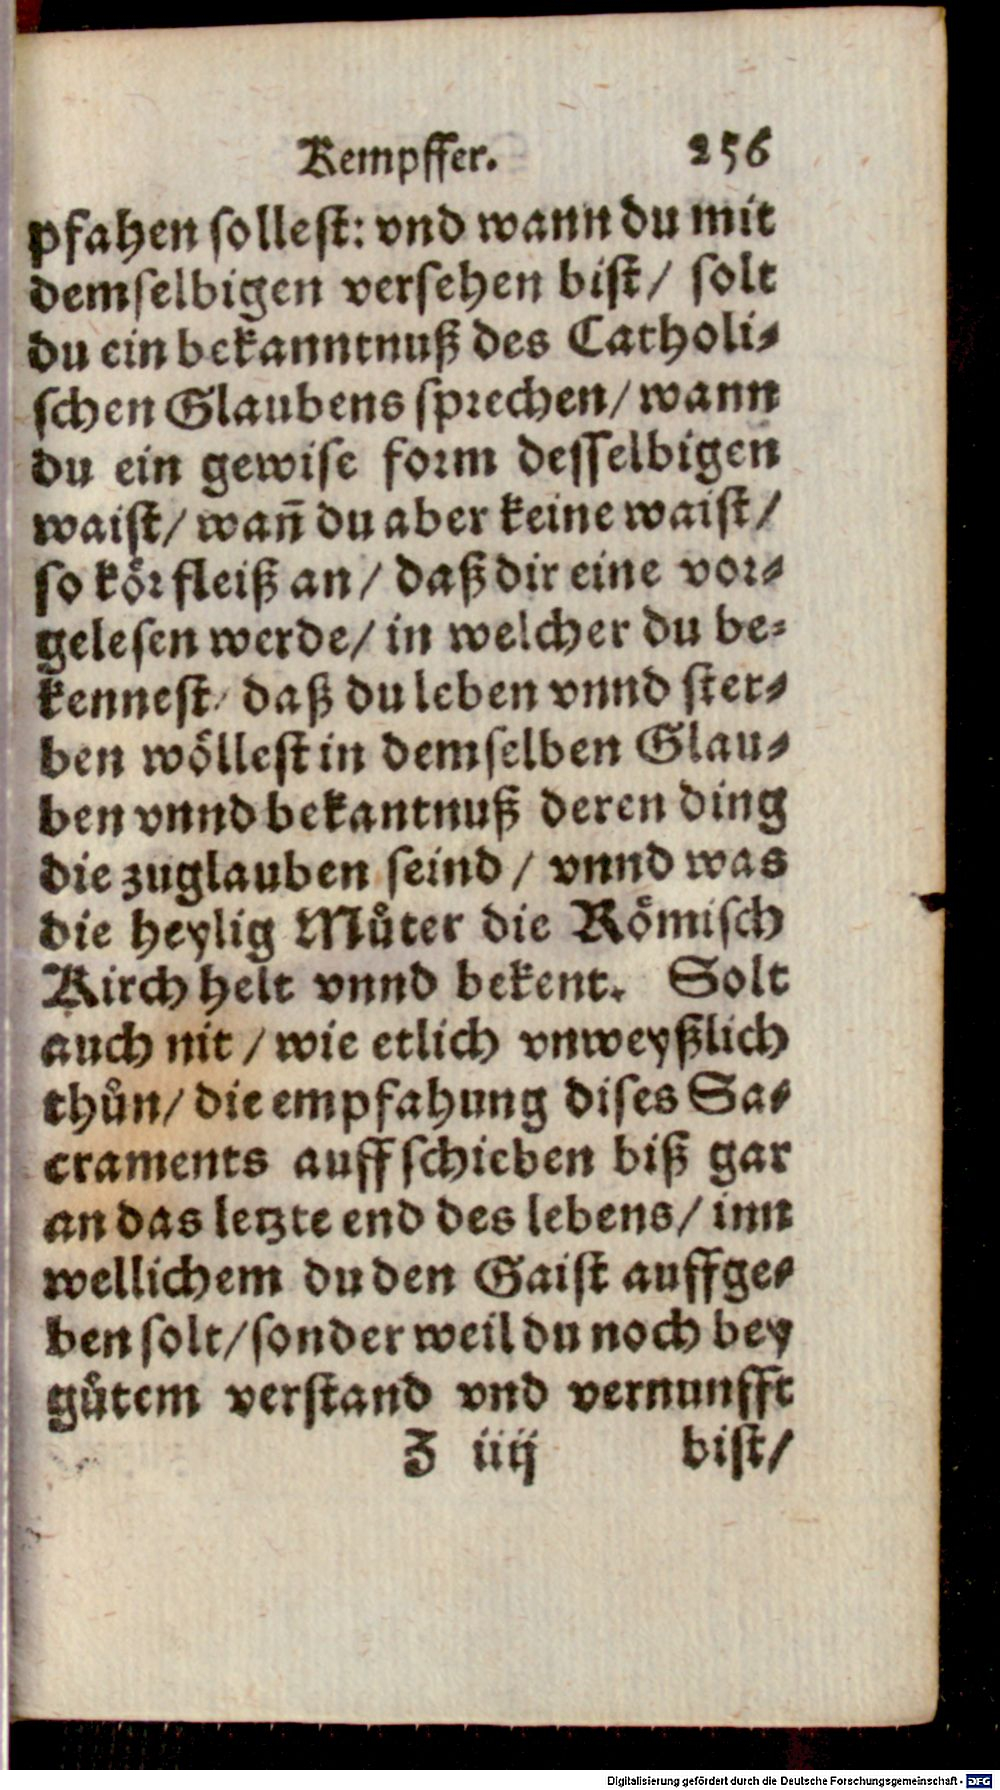 Kempffer. 256
pfahen sollest: vnd wann du mit
demselbigen versehen bist/ solt
du ein bekanntnuß des Catholi-
schen Glaubens sprechen/ wann
du ein gewise form desselbigen
waist/ wañ du aber keine waist/
so kör fleiß an/ daß dir eine vor-
gelesen werde/ in welcher du be-
kennest/ daß du leben vnnd ster-
ben wöllest in demselben Glau-
ben vnnd bekantnuß deren ding
die zuglauben seind / vnnd was
die heylig Můter die Römisch
Kirch helt vnnd bekent. Solt
auch nit / wie etlich vnweyßlich
thůn/ die empfahung dises Sa-
craments auffschieben biß gar
an das letzte end des lebens/ inn
wellichem du den Gaist auffge-
ben solt/ sonder weil du noch bey
gůtem verstand vnd vernunfft
Z iiij bist/
Digitalisierung gefördert durch die Deutsche Forschungsgemeinschaft - DFG